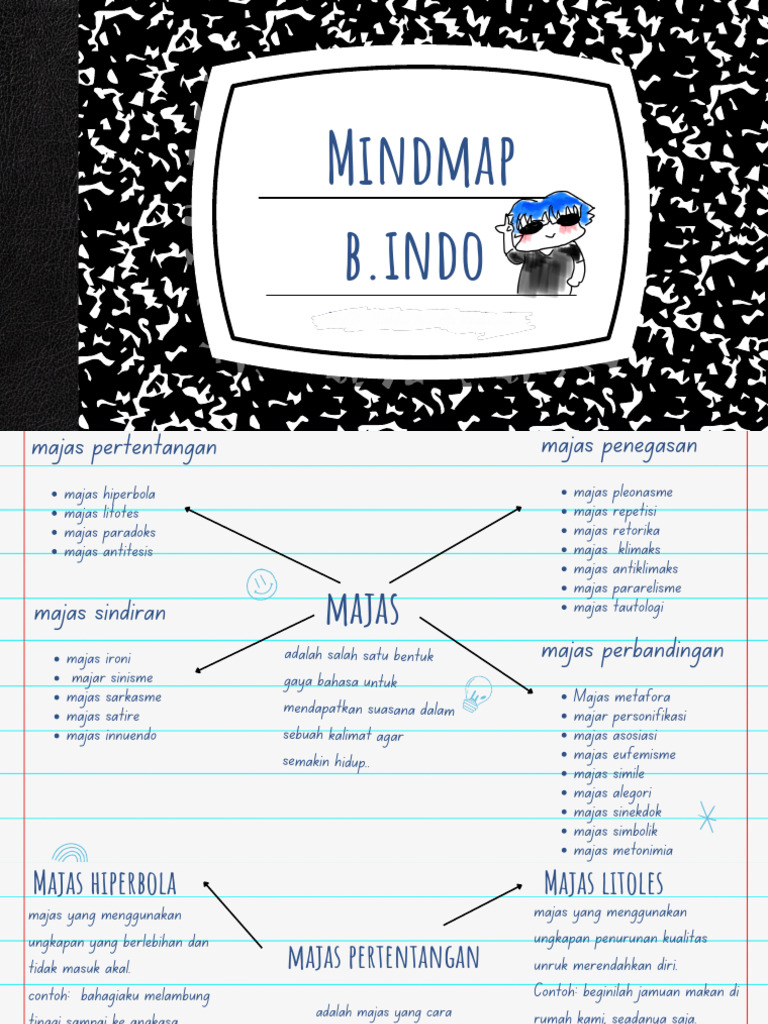 Mindmap
b.indo
majas pertentangan
majas hiperbola
majas litotes
majas paradoks
majas antitesis
majas penegasan
majas pleonasme
majas repetisi
majas retorika
majas klimaks
majas antiklimaks
majas pararelisme
majas tautologi
majas sindiran
majas ironi
majar sinisme
majas sarkasme
majas satire
majas innuendo
majas
adalah salah satu bentuk
gaya bahasa untuk
mendapatkan suasana dalam
sebuah kalimat agar
semakin hidup..
majas perbandingan
Majas metafora
majar personifikasi
majas asosiasi
majas eufemisme
majas simile
majas alegori
majas sinekdok
majas simbolik
majas metonimia
Majas hiperbola
majas yang menggunakan
ungkapan yang berlebihan dan
tidak masuk akal.
contoh: bahagiaku melambung
tinggi sampai ke angkasa
majas pertentangan
adalah majas yang cara
Majas litoles
majas yang menggunakan
ungkapan penurunan kualitas
unruk merendahkan diri.
Contoh: beginilah jamuan makan di
rumah kami, seadanya saja.